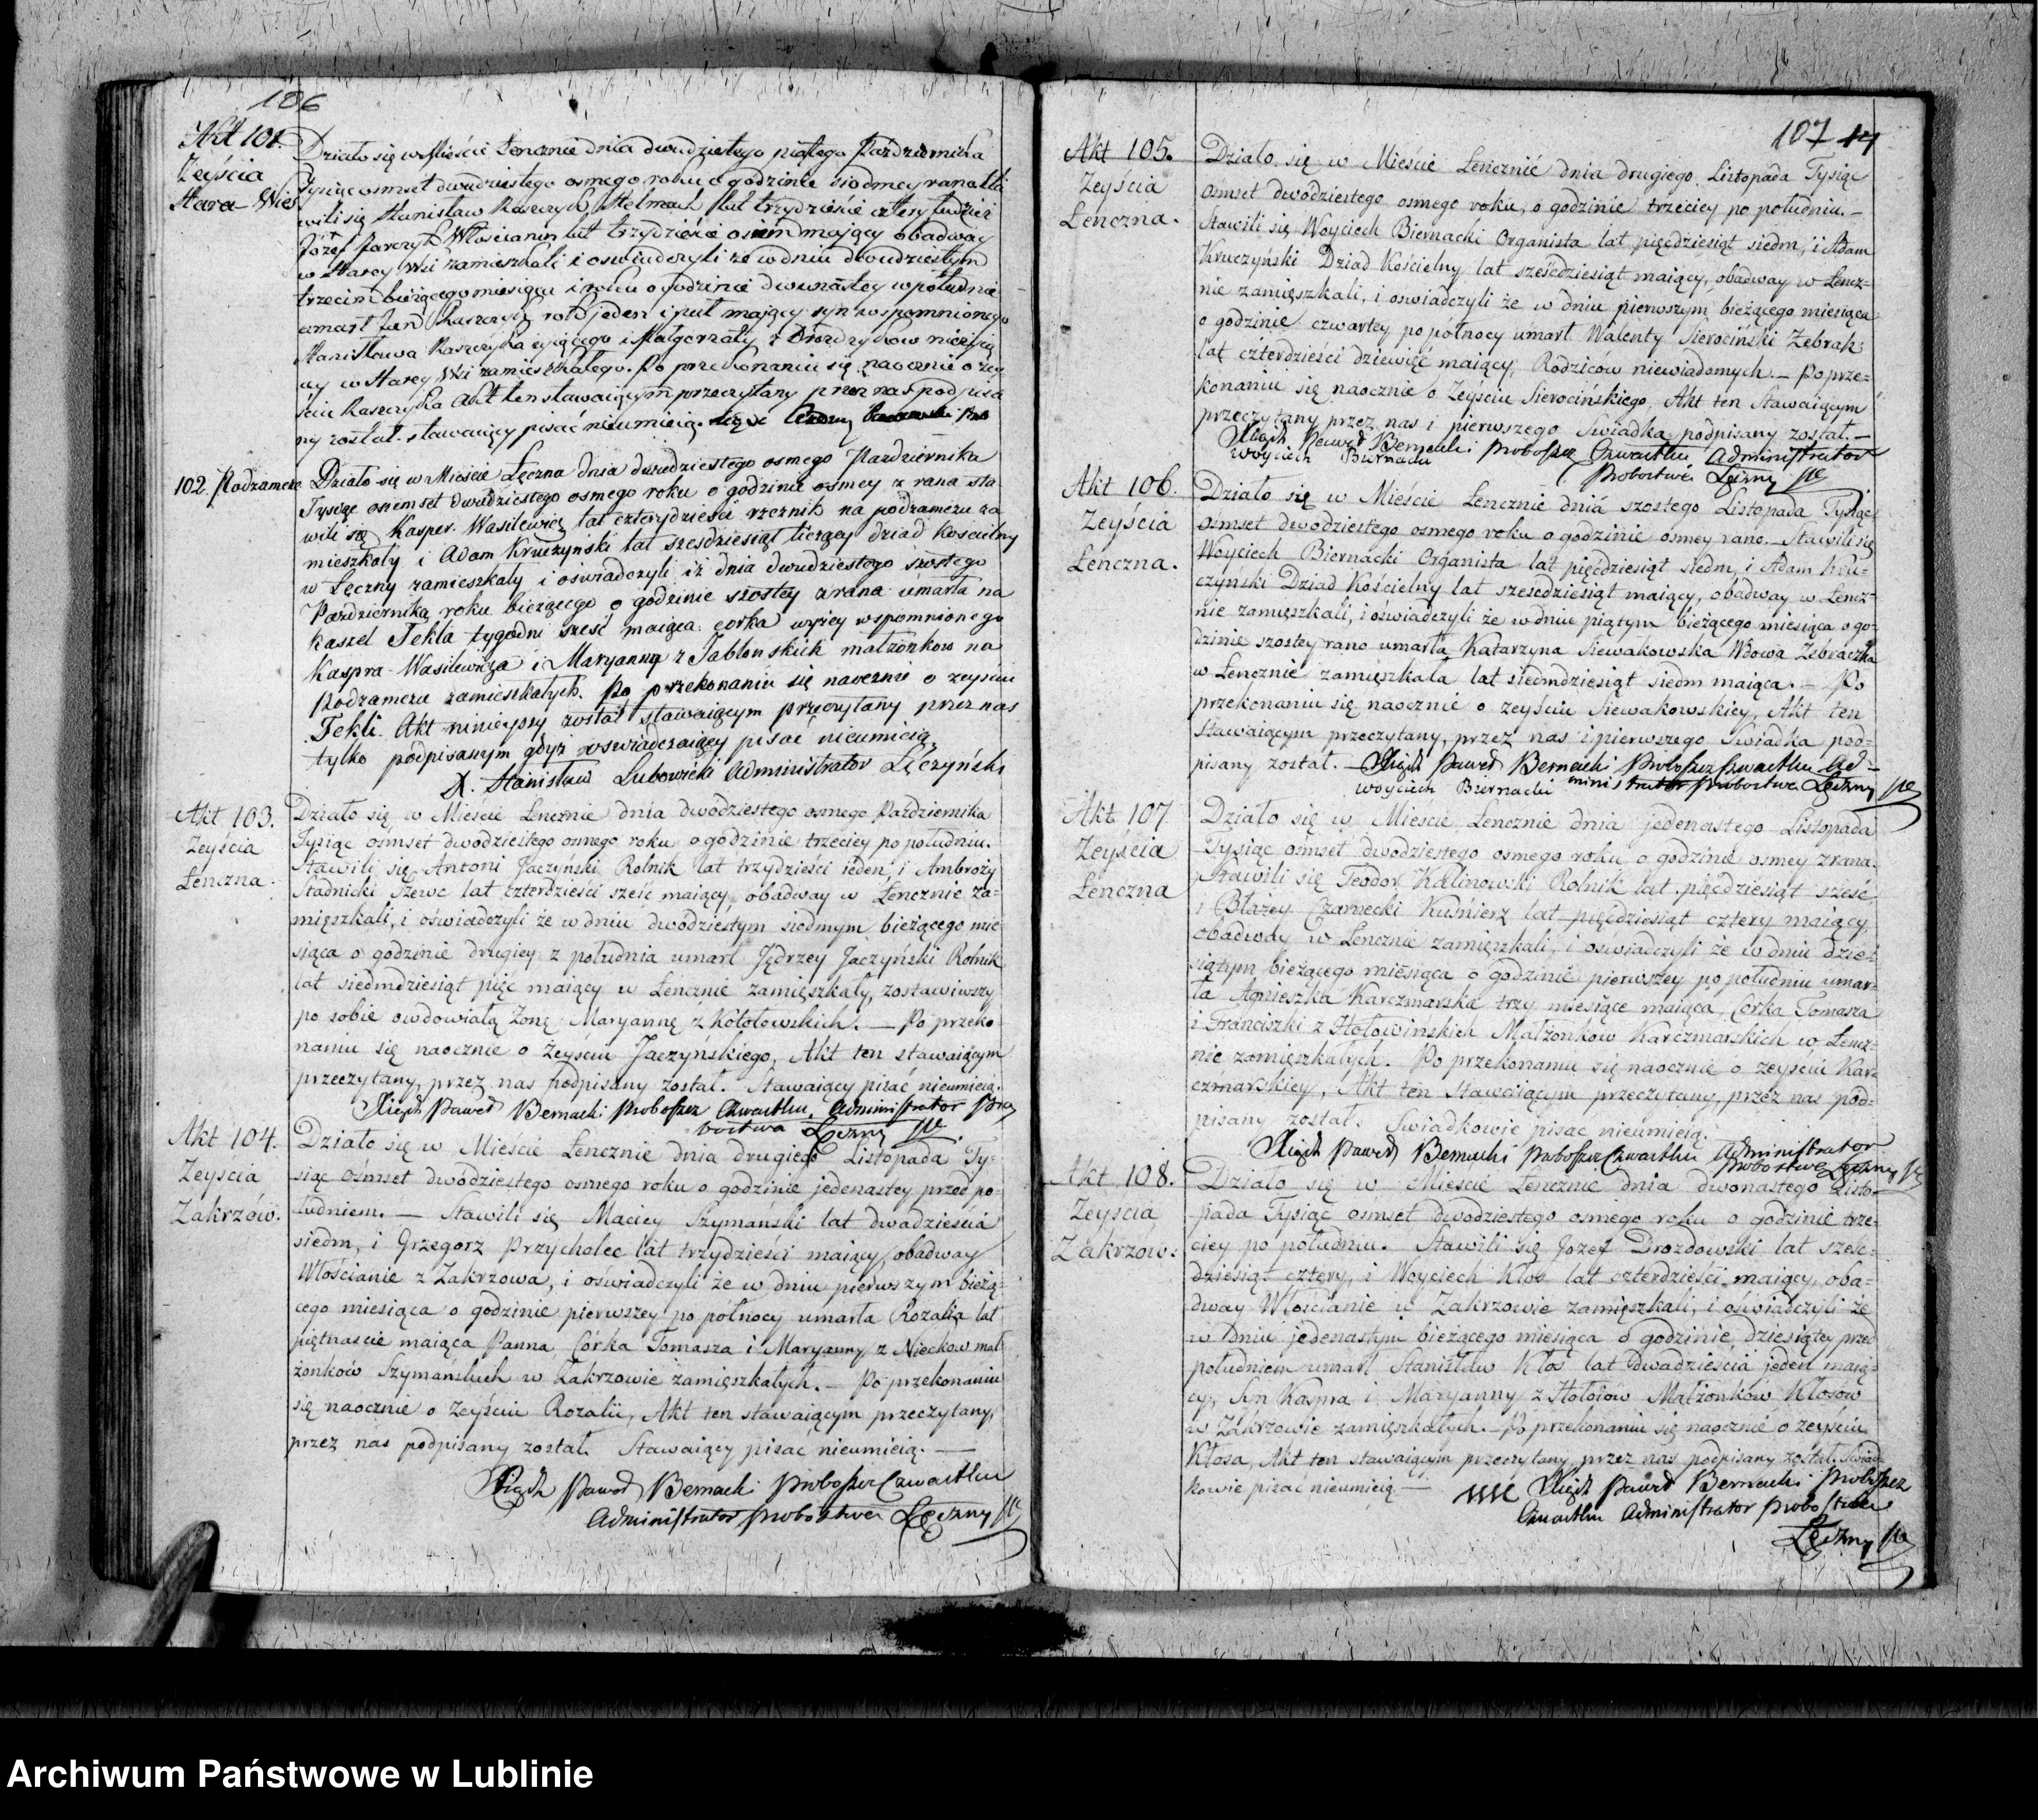 106
Akt 101.
Zeyścia
Stara Wieś
Działo się w Mieście Łencznie dnia dwudziestego piątego Pazdziernika
Tysiąc osmset dwudziestego osmego roku o godzinie siodmey rana sta
wili się Stanisław Kaszczyk Stelmach lat trzydzieście cztery tudzież
Jozef Parczyk Włościanin lat trzydzieście osiem mający obadway
w Starey Wsi zamieszkali i oswiadczyli ze w dniu dwudziestym
trzecim bieżącego miesiąca i roku o godzinie dwunastey w południe
umarł Jan Kaszczyk rok jeden i puł mający syn wspomnionego
Stanisława Kaszczyka żyjącego i Małgorzaty z
w Starey Wsi zamieszkałego. Po przekonaniu się naocznie o zey
ściu Kaszczyka Akt ten stawaiącym przeczytany przez nas podpisa
ny został. stawaiący pisać nieumieią.
102. Podzamcze
Działo się w Mieście Łęczna dnia dwudziestego osmego Pazdziernika
Tysiąc osiemset dwudziestego osmego roku o godzinie osmey z rana sta
wili się Kasper Wasilewicz lat czterydzieści rzeznik na podzamczu za
mieszkały i Adam Kruczyński lat szesdziesiąt liczący dziad koscielny
w Łęczny zamieszkały i oświadczyli iż dnia dwudziestego szostego
Pazdziernika roku bieżącego o godzinie szostey z rana umarła na
kaszel Tekla tygodni sześć maiąca corka wyżey wspomnionego
Kaspra Wasilewicza i Maryanny z Jabłonskich małżonkow na
Podzamczu zamieszkałych. Po przekonaniu się naocznie o zeysciu
Tekli Akt ninieyszy został stawaiącym przeczytany przez nas
tylko podpisanym gdyż oswiadczaiący pisać nieumieią
X. Stanisław Lubowicki Administrator Łęczyński
Akt 103.
Zeyścia
Łenczna.
Działo się w Mieście Łencznie dnia dwodziestego osmego Pazdziernika
Tysiąc osmset dwodziestego osmego roku o godzinie trzeciey po południu.
Stawili się Antoni Jaczyński Rolnik lat trzydzieści ieden, i Ambroży
Stadnicki Szewc lat czterdzieści sześć maiący, obadway w Łencznie za=
mięszkali, i oświadczyli że w dniu dwódziestym siodmym bieżącego mie=
siąca o godzinie drugiey z południa umarł Jędrzey Jaczyński Rolnik
lat siedmdziesiąt pięc maiący w Łencznie zamięszkały, zostawiwszy
po sobie owdowiałą Zonę Maryannę z Kotołowskich. — Po przeko=
naniu się naocznie o Zeyściu Jaczyńskiego, Akt ten stawaiącym
przeczytany, przez nas podpisany został. Stawaiący pisać nieumieią.
Xiądz Paweł Bernacki Proboszcz Chwałkw. Administrator Pro
bostwa Łęczny
Akt 104.
Zeyścia
Zakrzów.
Działo się w Mieście Łencznie dnia drugiego Listopada Ty=
siąc ośmset dwódziestego osmego roku o godzinie jedenastey przed po=
łudniem. — Stawili się Maciey Szymański lat dwadzieścia
siedm, i Grzegorz Przycholec lat trzydzieści maiący, obadway
Włościanie z Zakrzowa, i oświadczyli że w dniu pierwszym bieżą=
cego miesiąca o godzinie pierwszey po północy umarła Rozalia lat
piętnascie maiąca Panna Córka Tomasza i Maryanny z Niećkow mał=
żonków Szymańskich w Zakrzowie zamięszkałych. — Po przekonaniu
się naocznie o Zeyściu Rozalii, Akt ten stawaiącym przeczytany,
przez nas podpisany został. Stawaiący pisać nieumieią. —
Xiądz Paweł Bernacki Proboszcz
Administrator Probostwa Łęczny
107
Akt 105.
Zeyścia
Łenczna.
Działo się w Mieście Łencznie dnia drugiego Listopada Tysiąc
osmset dwódziestego osmego roku, o godzinie trzeciey po południu. —
Stawili się Woyciech Biernacki Organista lat pięćdziesiąt siedm, i Adam
Kruczyński Dziad Kościelny lat sześćdziesiąt maiący, obadway w Łencz=
nie zamięszkali, i oswiadczyli że w dniu pierwszym bieżącego miesiąca
o godzinie czwartey po północy umarł Walenty Sierociński Zebrak
lat czterdzieści dziewięć maiący, Rodziców niewiadomych. — Po prze=
konaniu się naocznie o Zeyściu Sierocińskiego, Akt ten Stawaiącym
przeczytany przez nas i pierwszego Swiadka podpisany został. —
Xiądz Paweł Bernacki Proboszcz Administrator
Woyciech Biernacki
Probostwa Łęczny
Akt 106.
Zeyścia
Łenczna.
Działo się w Mieście Łencznie dnia szostego Listopada Tysiąc
ośmset dwodziestego osmego roku o godzinie osmey rano. Stawili się
Woyciech Biernacki Organista lat pięćdziesiąt siedm, i Adam Kru=
czyński Dziad Kościelny lat sześćdziesiąt maiący, obadway w Łencz=
nie zamięszkali, i oświadczyli że w dniu piątym bieżącego miesiąca o go=
dzinie szostey rano umarła Katarzyna Siewakowska Wdowa Zebraczka
w Łencznie zamięszkała lat siedmdziesiąt siedm maiąca. — Po
przekonaniu się naocznie o zeyściu Siewakowskiey, Akt ten
Stawaiącym przeczytany, przez nas i pierwszego Swiadka pod=
pisany został. — Xiądz Paweł Bernacki Proboszcz Ad=
Woyciech Biernacki ministrator Probostwa Łęczny
Akt 107
Zeyścia
Łenczna
Działo się w Mieście Łencznie dnia jedenastego Listopada
Tysiąc ośmset dwodziestego osmego roku o godzinie osmey zrana.
Stawili się Teodor Kalinowski Rolnik lat pięćdziesiąt sześć,
i Błażey Czarnecki Kuśnierz lat pięćdziesiąt cztery maiący,
obadway w Łencznie zamięszkali, i oświadczyli że w dniu dzie=
siątym bieżącego miesiąca o godzinie pierwszey po południu umar=
ła Agnieszka Karczmarska trzy miesiące maiąca, Corka Tomasza
i Franciszki z Hołowinskich Małżonkow Karczmarskich w Łencz=
nie zamięszkałych. Po przekonaniu się naocznie o zeyściu Kar=
czmarskiey, Akt ten stawaiącym przeczytany, przez nas pod=
pisany został. Swiadkowie pisac nieumieią.
Xiądz Paweł Bernacki Proboszcz Administrator
Probostwa Łęczny
Akt 108.
Zeyscia
Zakrzow.
Działo się w Mieście Łencznie dnia dwonastego Listo=
pada Tysiąc ośmset dwodziestego osmego roku o godzinie trze=
ciey po południu. Stawili się Jozef Drozdowski lat sześć=
dziesiąt cztery, i Woyciech Kłos lat czterdzieści maiący, oba=
dway Włościanie w Zakrzowie zamięszkali, i oświadczyli że
w dniu jedenastym bieżącego miesiąca o godzinie dziesiątey przed
południem umarł Stanisław Kłos lat dwadzieścia jeden maią=
cy, Syn Kaspra i Maryanny z Hołoiów Małżonków Kłosów
w Zakrzowie zamięszkałych. — Po przekonaniu się naocznie o zeyściu
Kłosa, Akt ten stawaiącym przeczytany, przez nas podpisany został. Swiad=
kowie pisać nieumieią — Xiądz Paweł Bernacki Proboszcz
Administrator Probostwa
Łęczny
Archiwum Państwowe w Lublinie